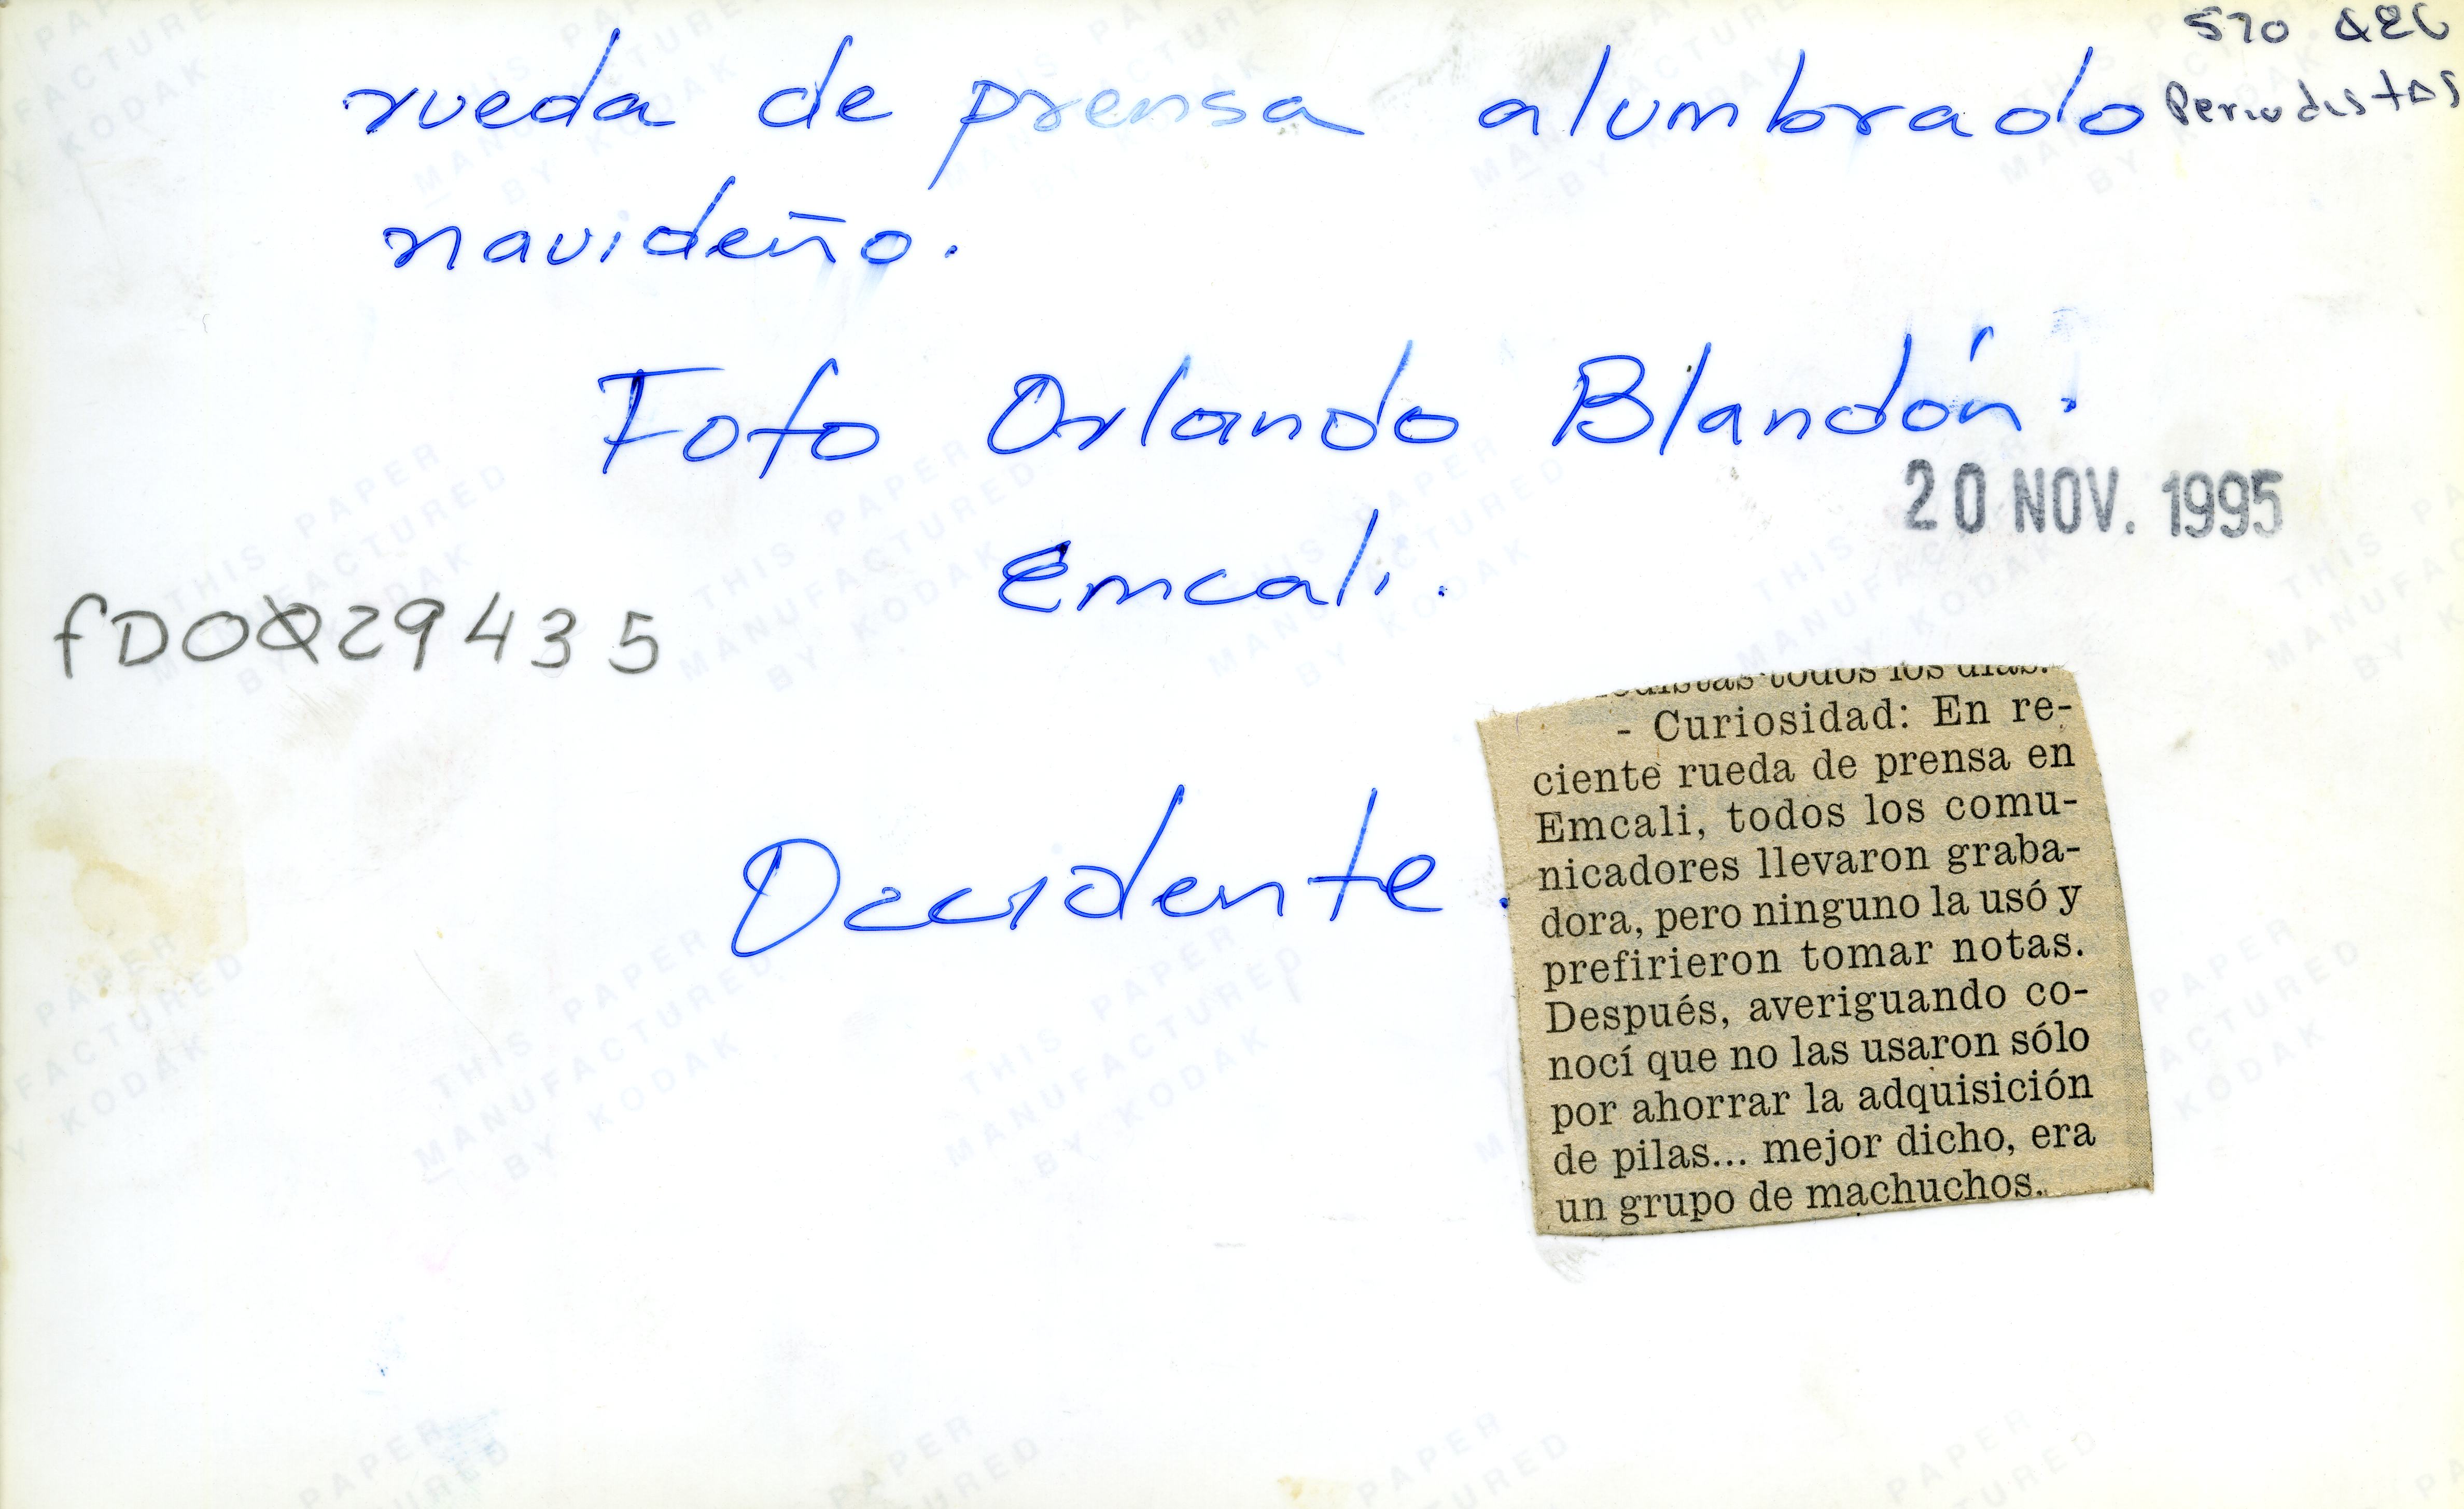 570.426
Periodistas
rueda de prensa alumbrado
navideño.
Foto Orlando Blandón.
20 NOV. 1995
Emcali.
fD0029435
Occidente.
todos los días.
- Curiosidad: En re-
ciente rueda de prensa en
Emcali, todos los comu-
nicadores llevaron graba-
dora, pero ninguno la usó y
prefirieron tomar notas.
Después, averiguando co-
nocí que no las usaron sólo
por ahorrar la adquisición
de pilas... mejor dicho, era
un grupo de machuchos.
THIS PAPER
MANUFACTURED
BY KODAK